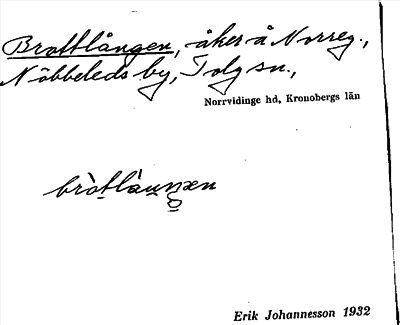 Brattlången, åker å Norreg.,
Nöbbeleds by, Tolg sn.,
Norrvidinge hd, Kronobergs län
Erik Johannesson 1932